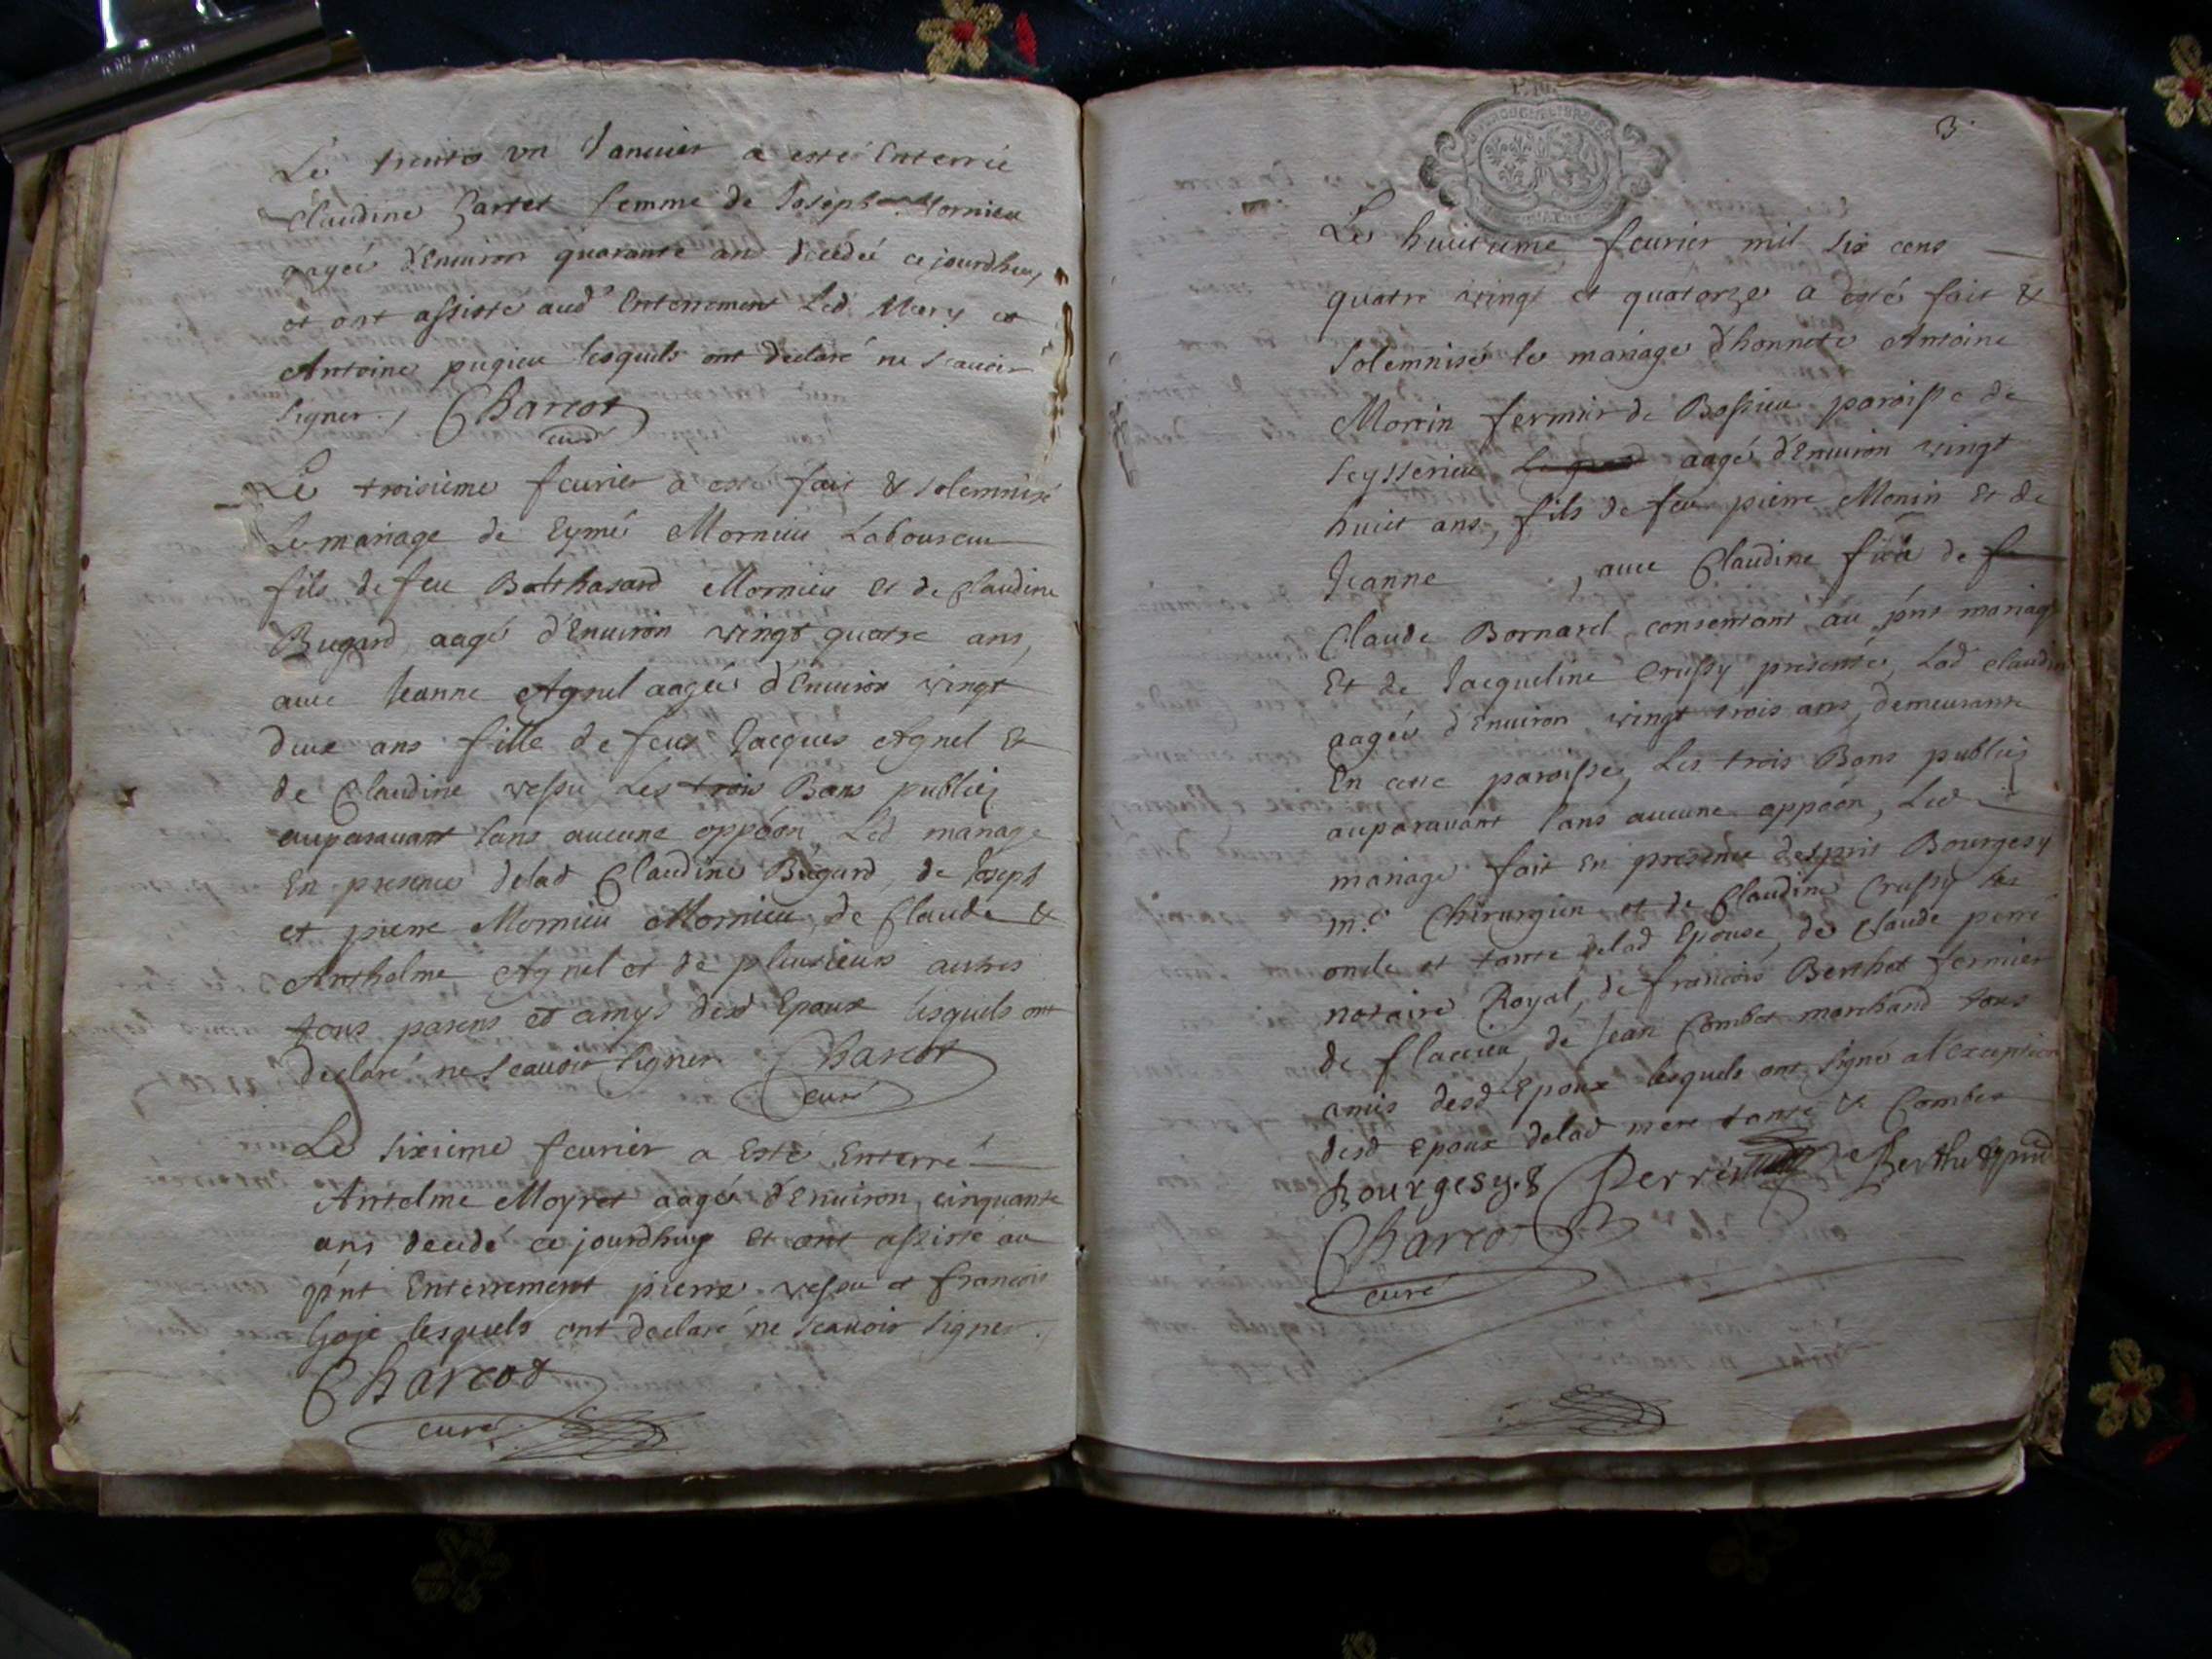 Le trente un Janvier a esté Enterrée
Claudine femme de Joseph Mornieu
aagée d'Environ quarante ans decedée ce jourdhuy
et ont assisté aud Enterrement Led Mary et
Antoine pugieu lesquels ont declaré ne scavoir
signer. Charcot
curé
Le troisieme fevrier a esté fait & solemnisé
Le mariage de Eymé Mornieu Laboureur
fils de feu Balthasard Mornieu et de Claudine
Bugard aagé d'Environ vingt quatre ans,
avec Jeanne Agnel aagée d'Environ vingt
deux ans fille de feu Jacques Agnel Et
de Claudine vessu Les trois Bans publiez
auparavant sans aucune oppóon, Led mariage
En presence delad Claudine Bugard, de Joseph
et pierre Mornieu Mornieu, de Claude &
Anthelme Agnel et de plusieurs autres
tous parens et amys desd Epoux lesquels ont
declaré ne scavoir signer Charcot
curé
Le sixieme fevrier a Esté Enterré
Antelme Moyret aagé d'Environ cinquante
ans decedé ce jourdhuy et ont assisté au
pnt Enterrement pierre vessu et francois
Goje lesquels ont declaré ne scavoir signer.
Charcot
curé
3
Le huitieme fevrier mil six cens
quatre vingt et quatorze a esté fait &
solemnisé le mariage d'honnete Antoine
Morin fermier de Bossieu paroisse de
Seysserieu aagé d'Environ vingt
huit ans, fils de feu pierre Monin Et de
Jeanne , avec Claudine fille de
Claude Bornard consentant au pnt mariage
Et de Jacqueline Crussy presente, Lad Claudine
aagée d'Environ vingt trois ans, demeurante
En cette paroisse, Les trois Bans publiez
auparavant sans aucune oppóon, Led
mariage fait En presence desprit Bourgesy
m.e Chirurgien et de Claudine Crussy
oncle et tante delad Epouse, de Claude perré
notaire Royal, de francois Berthet fermier
de flaccieu, de Jean Combet marchand tous
amis desd Epoux lesquels ont signé a l'exception
desd Epoux delad mere tante & Combet
Bourgesy Perré Berthet
Charcot
curé